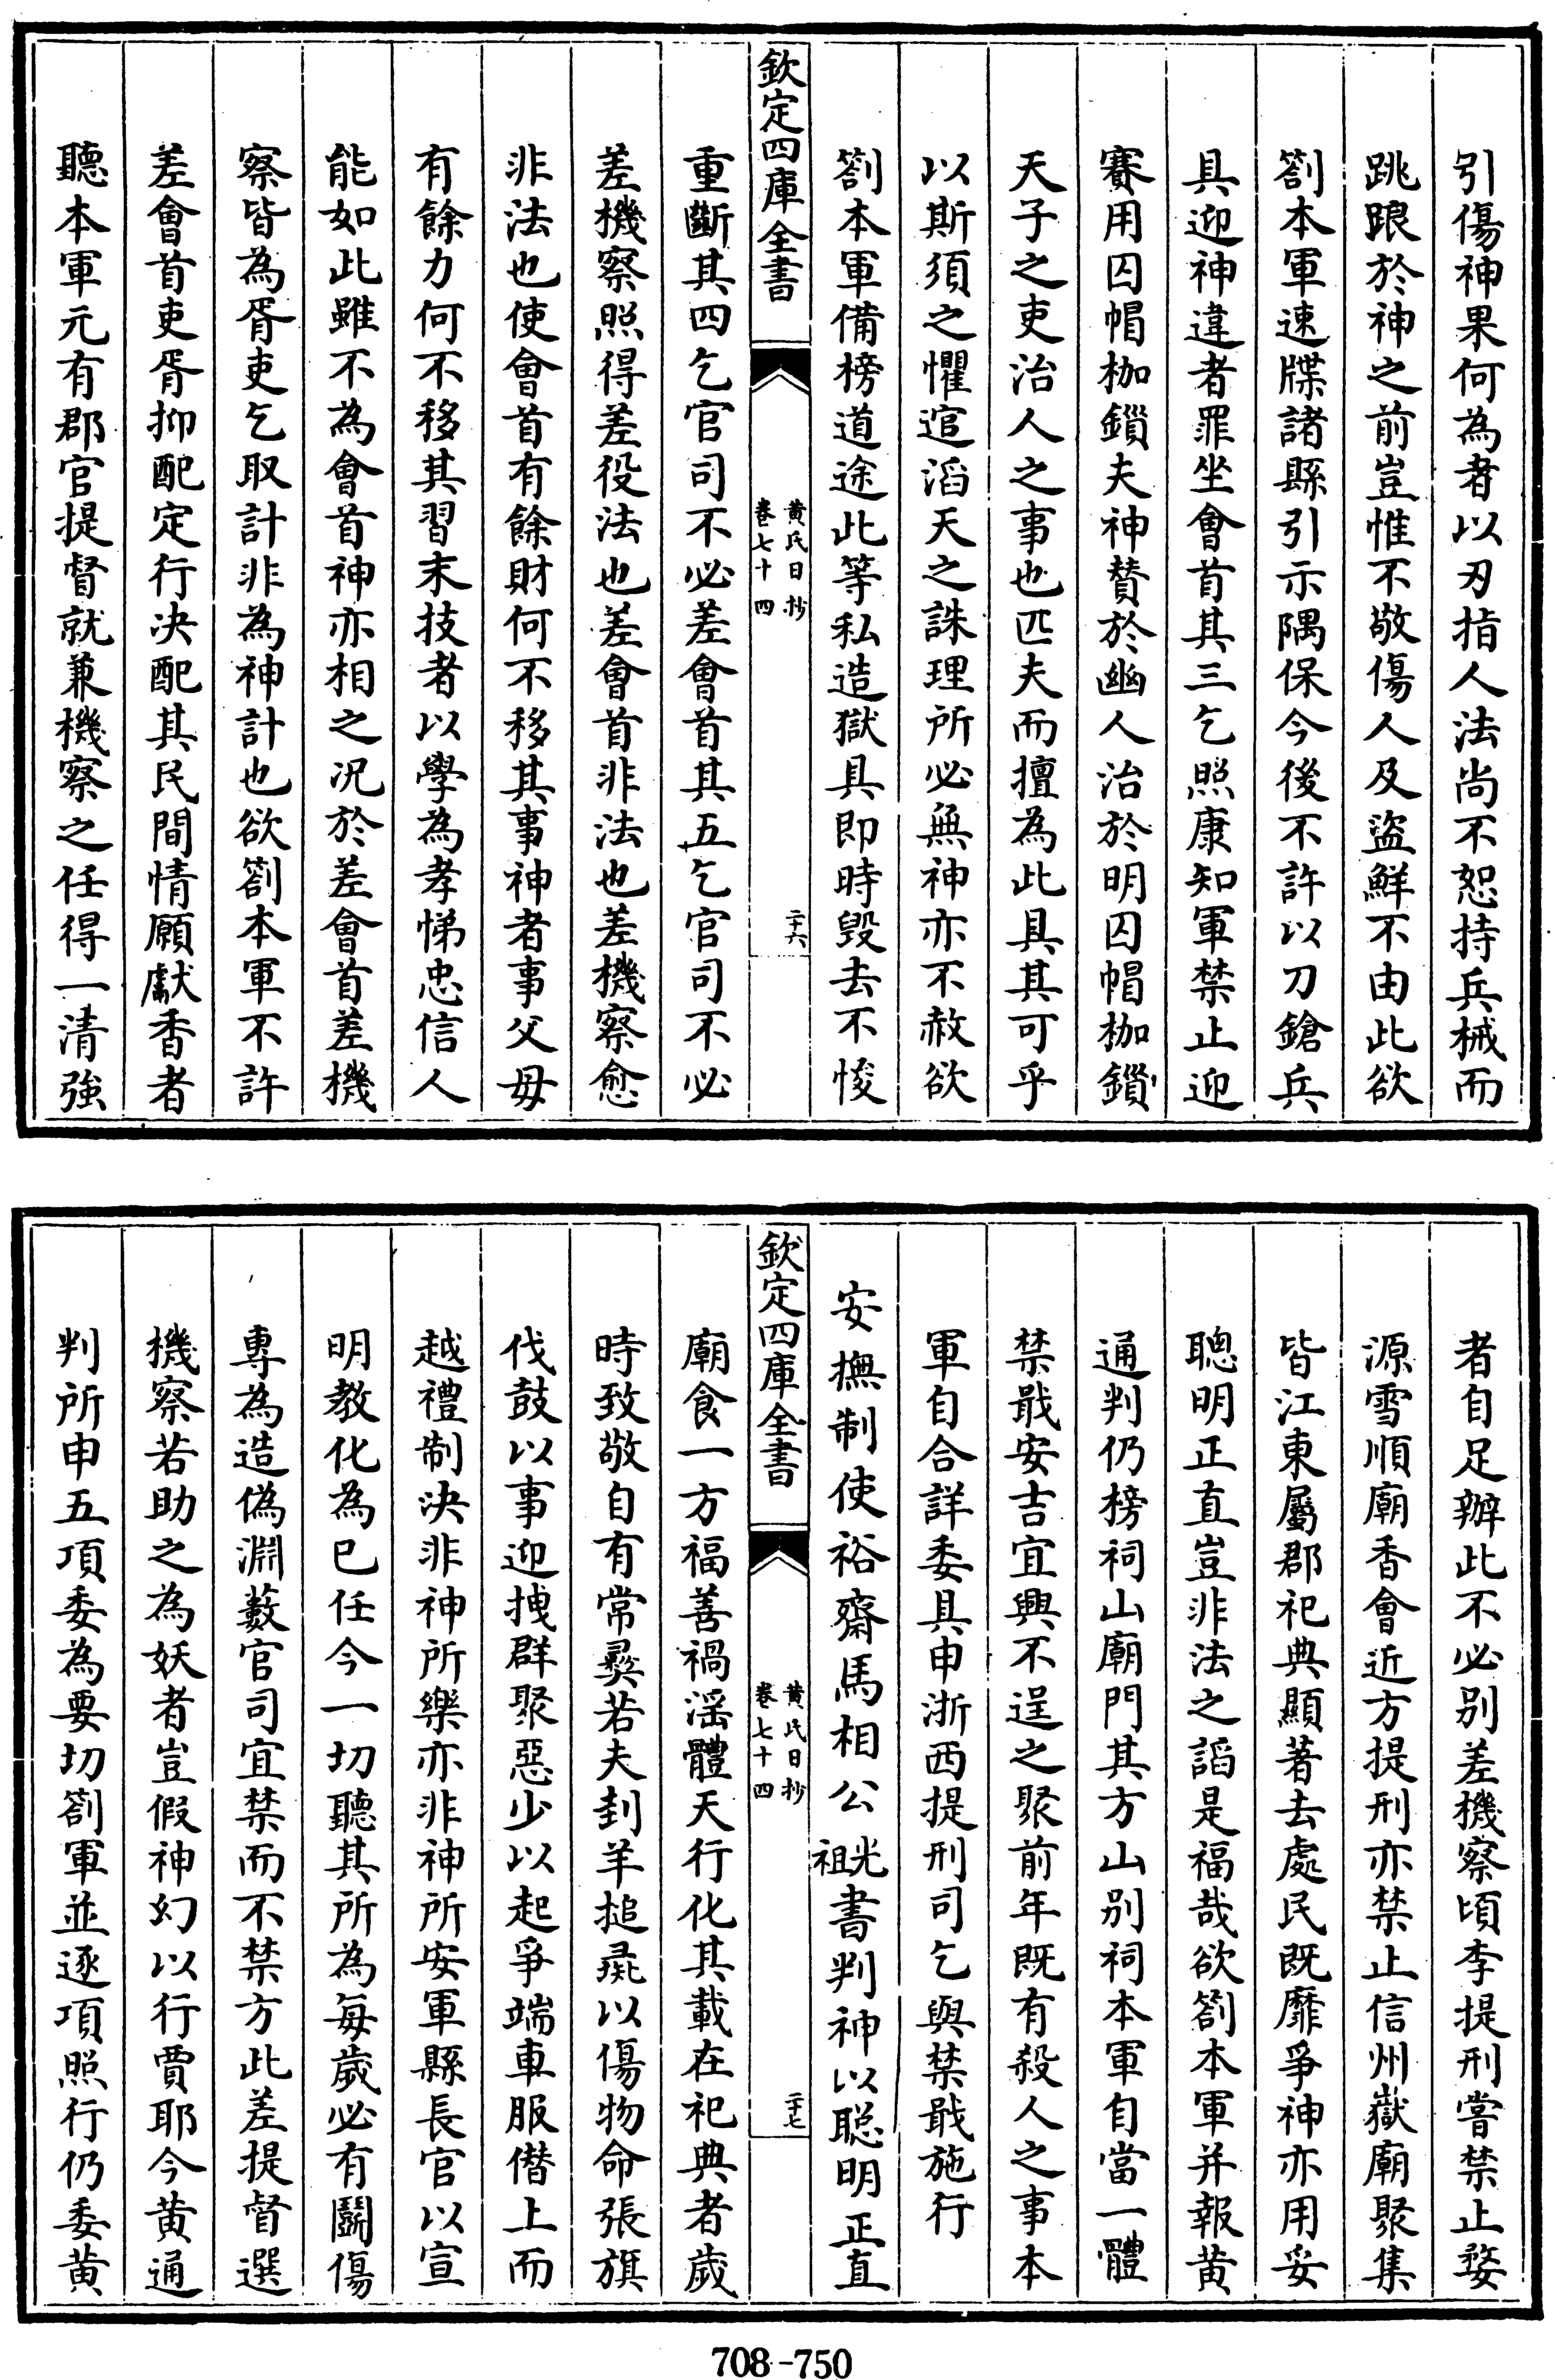 引傷神果何為者以刃指人法尚不恕持兵械而
跳踉於神之前豈惟不敬傷人及盜鮮不由此欲
劄本軍速牒諸縣引示隅保今後不許以刀鎗兵
具迎神違者罪坐會首其三乞照康知軍禁止迎
賽用囚帽枷鎻夫神賛於幽人治於明囚帽枷鎻
天子之吏治人之事也匹夫而擅為此具其可乎
以斯須之懼逭滔天之誅理所必無神亦不赦欲
劄本軍備榜道途此等私造獄具即時毀去不悛
欽定四庫全書
黃氏日抄
卷七十四
二十六
重斷其四乞官司不必差會首其五乞官司不必
差機察照得差役法也差會首非法也差機察愈
非法也使會首有餘財何不移其事神者事父母
有餘力何不移其習末技者以學為孝悌忠信人
能如此雖不為會首神亦相之况於差會首差機
察皆為胥吏乞取計非為神計也欲劄本軍不許
差會首吏胥抑配定行决配其民間情願獻香者
聽本軍元有郡官提督就兼機察之任得一清強
者自足辦此不必别差機察頃李提刑嘗禁止婺
源雪順廟香會近方提刑亦禁止信州嶽廟聚集
皆江東屬郡祀典顯著去處民既靡爭神亦用妥
聰明正直豈非法之謟是福哉欲劄本軍并報黄
通判仍榜祠山廟門其方山别祠本軍自當一體
禁戢安吉宜興不逞之聚前年既有殺人之事本
軍自合詳委具申浙西提刑司乞與禁戢施行
安撫制使裕齋馬相公光祖書判神以聰明正直
欽定四庫全書
黃氏日抄
卷七十四
二十七
廟食一方福善禍淫體天行化其載在祀典者歲
時致敬自有常彛若夫刲羊搥彘以傷物命張旗
伐鼓以事迎拽群聚惡少以起爭端車服僭上而
越禮制决非神所樂亦非神所安軍縣長官以宣
明教化為已任今一切聽其所為每歲必有鬭傷
專為造偽淵藪官司宜禁而不禁方此差提督選
機察若助之為妖者豈假神幻以行賈耶今黄通
判所申五項委為要切劄軍並逐項照行仍委黄
708-750